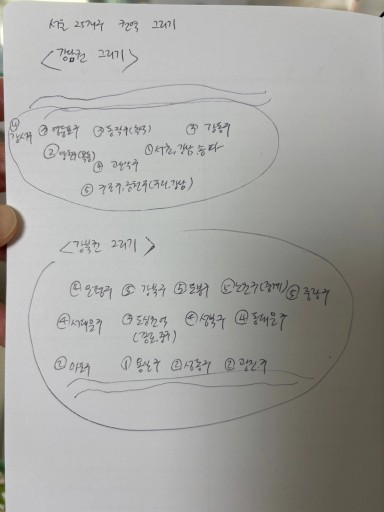 서울 25개구 권역 그리기
<강남권 그리기>
④ 강서구 ③ 영등포구 ③ 동작구(흑석) ③ 강동구
② 양천(목동) ④ 관악구 ① 서초, 강남, 송파
⑤ 구로구, 금천구
<강북권 그리기>
④ 은평구 ⑤ 강북구 ⑤ 도봉구 ⑤ 노원구(중계) ⑤ 중랑구
④ 서대문구 ③ 도심권역 ④ 성북구 ④ 동대문구
(종로, 중구)
② 마포구 ① 용산구 ② 성동구 ② 광진구